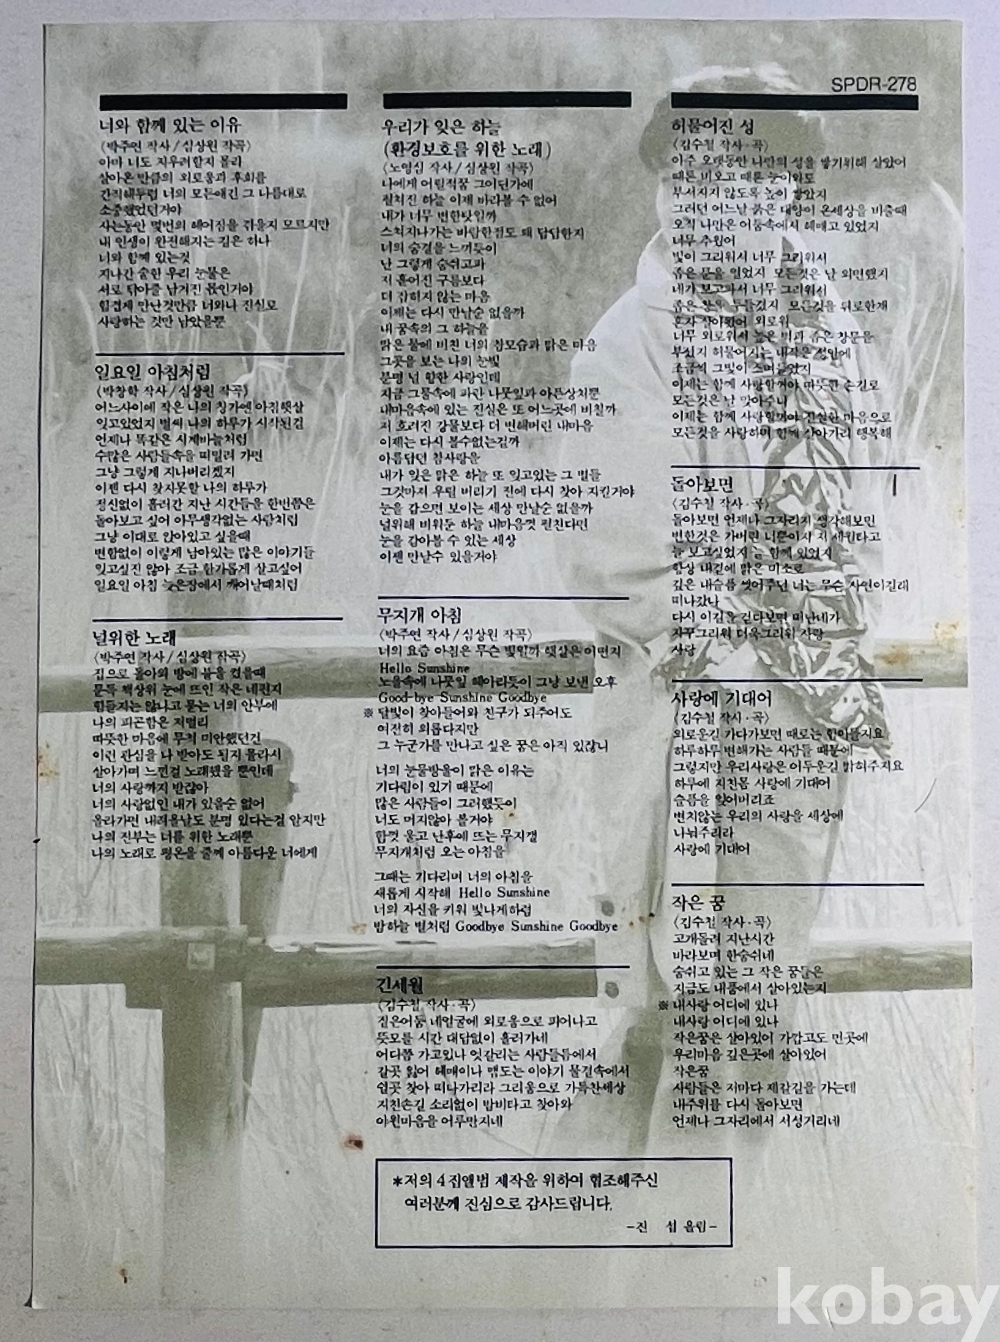 SPDR-278
너와 함께 있는 이유
(박주연 작사/심상원 작곡)
아마 너도 지우려할지 몰라
살아온 만큼의 외로움과 후회를
간직해두렴 너의 모든얘긴 그 나름대로
소중했었던거야
사는동안 몇번의 헤어짐을 겪을지 모르지만
내 인생이 완전해지는 길은 하나
너와 함께 있는것
지나간 숱한 우리 눈물은
서로 닦아줄 남겨진 몫인거야
힘겹게 만난것만큼 너와나 진실로
사랑하는 것만 남았을뿐
일요일 아침처럼
(박창학 작사/심상원 작곡)
어느사이에 작은 나의 창가엔 아침햇살
잊고있었지 벌써 나의 하루가 시작된걸
언제나 똑같은 시계바늘처럼
수많은 사람들속을 떠밀려 가면
그냥 그렇게 지나버리겠지
이젠 다시 찾지못할 나의 하루가
정신없이 흘러간 지난 시간들을 한번쯤은
돌아보고 싶어 아무생각없는 사람처럼
그냥 이대로 앉아있고 싶을때
변함없이 이렇게 남아있는 많은 이야기들
잊고싶진 않아 조금 한가롭게 살고싶어
일요일 아침 늦은잠에서 깨어날때처럼
널위한 노래
(박주연 작사/심상원 작곡)
집으로 돌아와 방에 불을 켰을때
문득 책상위 눈에 뜨인 작은 네편지
힘들지는 않냐고 묻는 너의 안부에
나의 피곤함은 저멀리
따뜻한 마음에 무척 미안했던건
이런 관심을 나 받아도 될지 몰라서
살아가며 느낀걸 노래했을 뿐인데
너의 사랑까지 받잖아
너의 사랑없인 내가 있을순 없어
올라가면 내려올날도 분명 있다는걸 알지만
나의 전부는 너를 위한 노래뿐
나의 노래로 평온을 줄께 아름다운 너에게
우리가 잊은 하늘
(환경보호를 위한 노래)
(노영심 작사/심상원 작곡)
나에게 어릴적꿈 그어딘가에
펼쳐진 하늘 이제 바라볼 수 없어
내가 너무 변한탓일까
스쳐지나가는 바람한점도 왜 답답한지
너의 숨결을 느끼듯이
난 그렇게 숨쉬고파
저 흩어진 구름보다
더 잡히지 않는 마음
이제는 다시 만날순 없을까
내 꿈속의 그 하늘을
맑은 물에 비친 너의 참모습과 맑은 마음
그곳을 보는 나의 눈빛
분명 널 향한 사랑인데
지금 그물속에 파란 나뭇잎과 아픈상처뿐
내마음속에 있는 진실은 또 어느곳에 비칠까
저 흐려진 강물보다 더 변해버린 내마음
이제는 다시 볼수없는걸까
아름답던 참사랑을
내가 잊은 맑은 하늘 또 잊고있는 그 별들
그것마저 우릴 버리기 전에 다시 찾아 지킬거야
눈을 감으면 보이는 세상 만날순 없을까
널위해 비워둔 하늘 내마음껏 펼친다면
눈을 감아볼 수 있는 세상
이젠 만날수 있을거야
무지개 아침
(박주연 작사/심상원 작곡)
너의 요즘 아침은 무슨 빛일까 햇살은 어떤지
Hello Sunshine
노을속에 나뭇잎 헤아리듯이 그냥 보낸 오후
Good-bye Sunshine Goodbye
※ 달빛이 찾아들어와 친구가 되주어도
여전히 외롭다지만
그 누군가를 만나고 싶은 꿈은 아직 있잖니
너의 눈물방울이 맑은 이유는
기다림이 있기 때문에
많은 사람들이 그러했듯이
너도 머지않아 볼거야
함껏 울고 난후에 뜨는 무지갤
무지개처럼 오는 아침을
그때는 기다리며 너의 아침을
새롭게 시작해 Hello Sunshine
너의 자신을 키워 빛나게하렴
밤하늘 별처럼 Goodbye Sunshine Goodbye
긴세월
(김수철 작사·곡)
짙은어둠 네얼굴에 외로움으로 피어나고
뜻모를 시간 대답없이 흘러가네
어디쯤 가고있나 엇갈리는 사람들틈에서
갈곳 잃어 헤매이나 맴도는 이야기 물결속에서
쉴곳 찾아 떠나가리라 그리움으로 가득찬세상
지친손길 소리없이 밤비타고 찾아와
야윈마음을 어루만지네
허물어진 성
(김수철 작사·곡)
아주 오랫동안 나만의 성을 쌓기위해 살았어
때론 비오고 때론 눈이와도
부서지지 않도록 높이 쌓았지
그러던 어느날 붉은 태양이 온세상을 비출때
오직 나만은 어둠속에서 헤매고 있었지
너무 추웠어
빛이 그리워서 너무 그리워서
좁은 문을 열었지 모든것은 날 외면했지
네가 보고파서 너무 그리워서
좁은 창문 두들겼지 모든것을 뒤로한채
혼자 살아왔어 외로워
너무 외로워서 높은 벽과 좁은 창문을
부쉈지 허물어지는 내작은 성안에
조금씩 그빛이 스며들었지
이제는 함께 사랑할꺼야 따뜻한 손길로
모든것은 날 맞아주니
이제는 함께 사랑할꺼야 진실한 마음으로
모든것을 사랑하며 함께 살아가리 행복해
돌아보면
(김수철 작사·곡)
돌아보면 언제나 그자리지 생각해보면
변한것은 가버린 너뿐이지 저 세월타고
늘 보고싶었지 늘 함께 있었지
항상 내곁에 맑은 미소로
깊은 내슬픔 씻어주던 너는 무슨 사연이길래
떠나갔나
다시 이길을 걷다보면 떠난네가
자꾸그리워 더욱그리워 사랑
사랑
사랑에 기대어
(김수철 작사·곡)
외로운길 가다가보면 때로는 힘이들지요
하루하루 변해가는 사람들 때문에
그렇지만 우리사랑은 어두운길 밝혀주지요
하루에 지친몸 사랑에 기대어
슬픔을 잊어버리죠
변치않는 우리의 사랑을 세상에
나눠주리라
사랑에 기대어
작은 꿈
(김수철 작사·곡)
고개돌려 지난시간
바라보며 한숨쉬네
숨쉬고 있는 그 작은 꿈들은
지금도 내품에서 살아있는지
※ 내사랑 어디에 있나
내사랑 어디에 있나
작은꿈은 살아있어 가깝고도 먼곳에
우리마음 깊은곳에 살아있어
작은꿈
사람들은 저마다 제갈길을 가는데
내주위를 다시 돌아보면
언제나 그자리에서 서성거리네
*저의 4집앨범 제작을 위하여 협조해주신
여러분께 진심으로 감사드립니다.
-진 섭 올림-
kobay